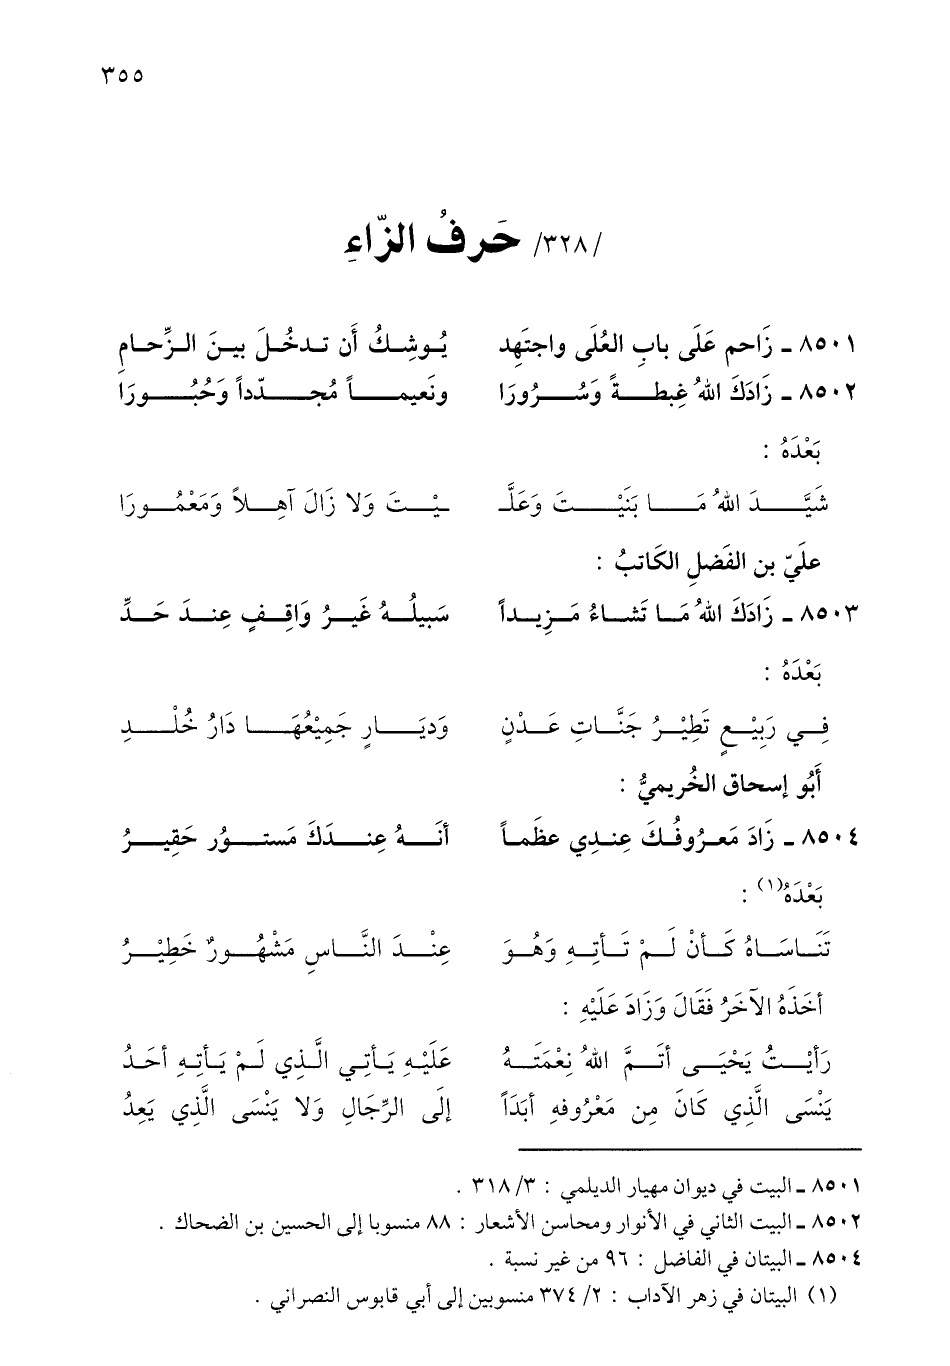 ٣٥٥
/٣٢٨/ حَرفُ الزّاءِ
٨٥٠١ ـ زَاحم عَلَى بابِ العُلَى واجتَهِد يُوشِكُ أن تدخُلَ بينَ الزِّحامِ
٨٥٠٢ ـ زَادَكَ اللهُ غِبطةً وَسُرُورَا ونَعيماً مُجدّداً وَحُبُورَا
بَعْدَهُ :
شَيَّدَ اللهُ مَا بَنَيْتَ وَعَلَّـ ـيْتَ وَلا زَالَ آهِلاً وَمَعْمُورَا
عليّ بن الفَضلِ الكَاتبُ :
٨٥٠٣ ـ زَادَكَ اللهُ مَا تَشاءُ مَزِيداً سَبيلُهُ غَيرُ وَاقِفٍ عِندَ حَدِّ
بَعْدَهُ :
فِي رَبِيْعٍ تَطِيْرُ جَنَّاتِ عَدْنٍ وَديَارٍ جَمِيْعُهَا دَارُ خُلْدِ
أَبُو إسحاق الخُريميُّ :
٨٥٠٤ ـ زَادَ مَعرُوفُكَ عِندِي عظَماً أنَهُ عِندَكَ مَستوُر حَقِيرُ
بَعْدَهُ(١) :
تَنَاسَاهُ كَأنْ لَمْ تَأتِهِ وَهُوَ عِنْدَ النَّاسِ مَشْهُورٌ خَطِيْرُ
أخَذَهُ الآخَرُ فَقَالَ وَزَادَ عَلَيْهِ :
رَأيْتُ يَحْيَى أتَمَّ اللهُ نِعْمَتَهُ عَلَيْهِ يَأتِي الَّذِي لَمْ يَأتِهِ أحَدُ
يَنْسَى الَّذِي كَانَ مِن مَعْرُوفهِ أبَدَاً إلَى الرِّجَالِ وَلا يَنْسَى الَّذِي يَعِدُ
٨٥٠١ ـ البيت في ديوان مهيار الديلمي : ٣/ ٣١٨ .
٨٥٠٢ ـ البيت الثاني في الأنوار ومحاسن الأشعار : ٨٨ منسوبا إلى الحسين بن الضحاك .
٨٥٠٤ ـ البيتان في الفاضل : ٩٦ من غير نسبة .
(١) البيتان في زهر الآداب : ٢/ ٣٧٤ منسوبين إلى أبي قابوس النصراني .